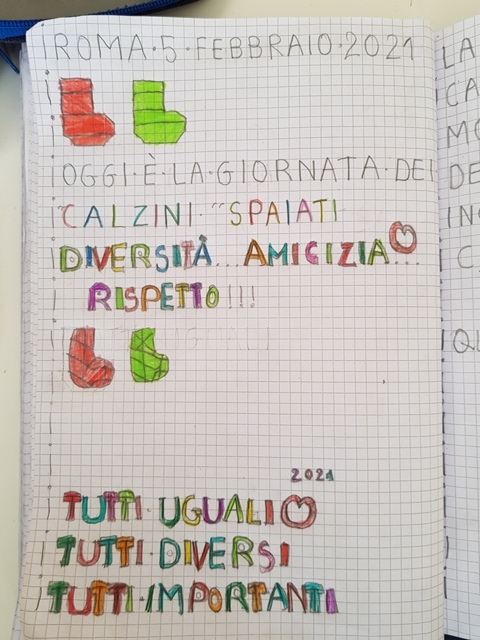 ROMA·5·FEBBRAIO·2021
OGGI·È·LA·GIORNATA·DEI
"CALZINI·"SPAIATI
DIVERSITÀ...AMICIZIA...
RISPETTO!!!
2021
TUTTI·UGUALI
TUTTI·DIVERSI
TUTTI·IMPORTANTI
LA
CA
MO
DE
IN
C
QU